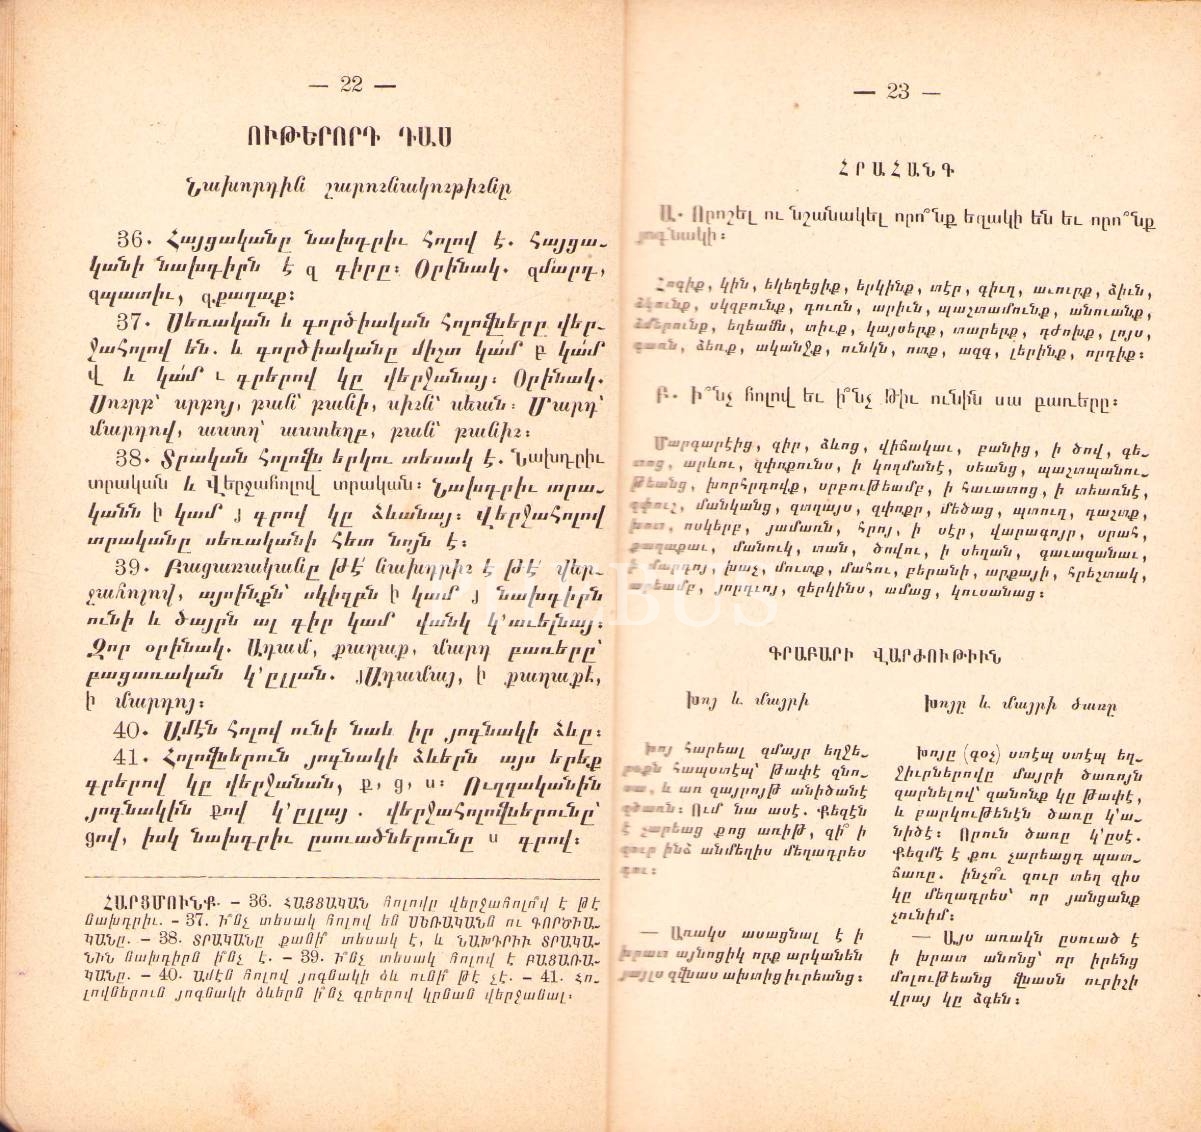 — 22 —
ՈՒԹԵՐՈՐԴ ԴԱՍ
Նախորդին շարունակութիւնը
36. Հայցականը նախդրիւ հոլով է. հայցա-
կանի նախդիրն է զ գիրը։ Օրինակ. զմարդ,
զպատիւ, զքաղաք։
37. Սեռական և գործիական հոլովները վեր-
ջահոլով են. և գործիականը միշտ կա՛մ բ կա՛մ
վ և կա՛մ ւ գրերով կը վերջանայ։ Օրինակ.
Սուրբ՝ սրբոյ, բան՝ բանի, սիւն՝ սեան։ Մարդ՝
մարդով, աստղ՝ աստեղբ, բան՝ բանիւ։
38. Տրական հոլովն երկու տեսակ է. Նախդրիւ
տրական և Վերջահոլով տրական։ Նախդրիւ տրա-
կանն ի կամ յ գրով կը ձևանայ։ Վերջահոլով
տրականը սեռականի հետ նոյն է։
39. Բացառականը թէ՛ նախդրիւ է թէ՛ վեր-
ջահոլով, այսինքն՝ սկիզբն ի կամ յ նախդիրն
ունի և ծայրն ալ գիր կամ վանկ կ՚աւելնայ։
Զոր օրինակ. Ադամ, քաղաք, մարդ բառերը՝
բացառական կ՚ըլլան. յԱդամայ, ի քաղաքէ,
ի մարդոյ։
40. Ամէն հոլով ունի նաև իր յոգնակի ձևը։
41. Հոլովներուն յոգնակի ձևերն այս երեք
գրերով կը վերջանան, ք, ց, ս։ Ուղղականին
յոգնակին քով կ՚ըլլայ. վերջահոլովներունը՝
ցով, իսկ նախդրիւ ըսուածներունը ս գրով։
ՀԱՐՑՄՈՒՆՔ. – 36. ՀԱՅՑԱԿԱՆ հոլովը վերջահոլո՞վ է թէ
նախդրիւ. – 37. Ի՞նչ տեսակ հոլով են ՍԵՌԱԿԱՆն ու ԳՈՐԾԻԱ-
ԿԱՆը. – 38. ՏՐԱԿԱՆը քանի՞ տեսակ է, և ՆԱԽԴՐԻՒ ՏՐԱԿԱ-
ՆԻՆ նախդիրն ի՞նչ է. – 39. Ի՞նչ տեսակ հոլով է ԲԱՑԱՌԱ-
ԿԱՆը. – 40. Ամէն հոլով յոգնակի ձև ունի՞ թէ չէ. – 41. Հո-
լովներուն յոգնակի ձևերն ի՞նչ գրերով կրնան վերջանալ։
— 23 —
ՀՐԱՀԱՆԳ
Ա. Որոշել ու նշանակել որո՞նք եզակի են եւ որո՞նք
յոգնակի։
Հոգիք, կին, եկեղեցիք, երկինք, տէր, գիւղ, աւուրք, ձիւն,
ձկունք, սկզբունք, դուռն, արիւն, պաշտամունք, անուանք,
ձմերունք, եղեամն, տիւք, կայսերք, տարերք, դժոխք, լոյս,
գառն, ձեռք, ականջք, ունկն, ոտք, ազգ, լերինք, որդիք։
Բ. Ի՞նչ հոլով եւ ի՞նչ Թիւ ունին սա բառերը։
Մարգարէից, գիր, ձևոց, վիճակաւ, բանից, ի ծով, գե-
տոց, արևու, զփոքունս, ի կողմանէ, սեանց, պաշտպանու-
թեանց, խորհրդովք, սրբութեամբ, ի հաւատոց, ի տեառնէ,
զփուշ, մանկանց, զտղայս, զփոքր, մեծաց, պտուղ, դաշտք,
խոտ, ոսկերբ, յամառն, հրոյ, ի սէր, վարագոյր, սրահ,
քաղաքաւ, մանուկ, տան, ծովու, ի սեղան, գաւազանաւ,
ի մարդոյ, խաչ, մուտք, մահու, բերանի, արքայի, հրեշտակ,
արեամբ, յորդւոյ, զերկինս, ամաց, կուսանաց։
ԳՐԱԲԱՐԻ ՎԱՐԺՈՒԹԻՒՆ
Խոյ և մայրի
Խոյ հարեալ զմայր եղջե-
րօքն հապստէպ՝ թափէ զնո-
սա, և առ զայրոյթ անիծանէ
զծառն։ Ում նա ասէ. Քեզէն
է չարեաց քոց առիթ, զի՞ ի
զուր ինձ անմեղիս մեղադրես
դու։
— Առակս ասացեալ է ի
խրատ այնոցիկ որք արկանեն
յայլս զվնաս ախտից իւրեանց։
Խոյը և մայրի ծառը
Խոյը (գօչ) ստէպ ստէպ եղ-
ջիւրներովը մայրի ծառոյն
զարնելով՝ զանոնք կը թափէ,
և բարկութենէն ծառը կ՚ա-
նիծէ։ Որուն ծառը կ՚ըսէ.
Քեզմէ է քու չարեացդ պատ-
ճառը. ինչո՞ւ զուր տեղ զիս
կը մեղադրես՝ որ յանցանք
չունիմ։
— Այս առակն ըսուած է
ի խրատ անոնց՝ որ իրենց
մոլութեանց վնասն ուրիշի
վրայ կը ձգեն։
PHEBUS